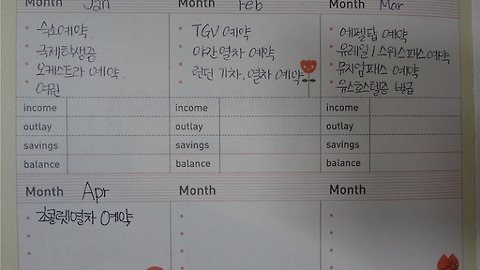 Month Jan
Month Feb
Month Mar
숙소예약
국제학생증
오케스트라 예약
여권
TGV 예약
야간열차 예약
런던 기차, 열차 예약
에펠탑 예약
유레일/스위스패스예약
뮤지엄패스 예약
유스호스텔증 발급
income
income
income
outlay
outlay
outlay
savings
savings
savings
balance
balance
balance
Month Apr
Month
Month
초콜렛열차 예약